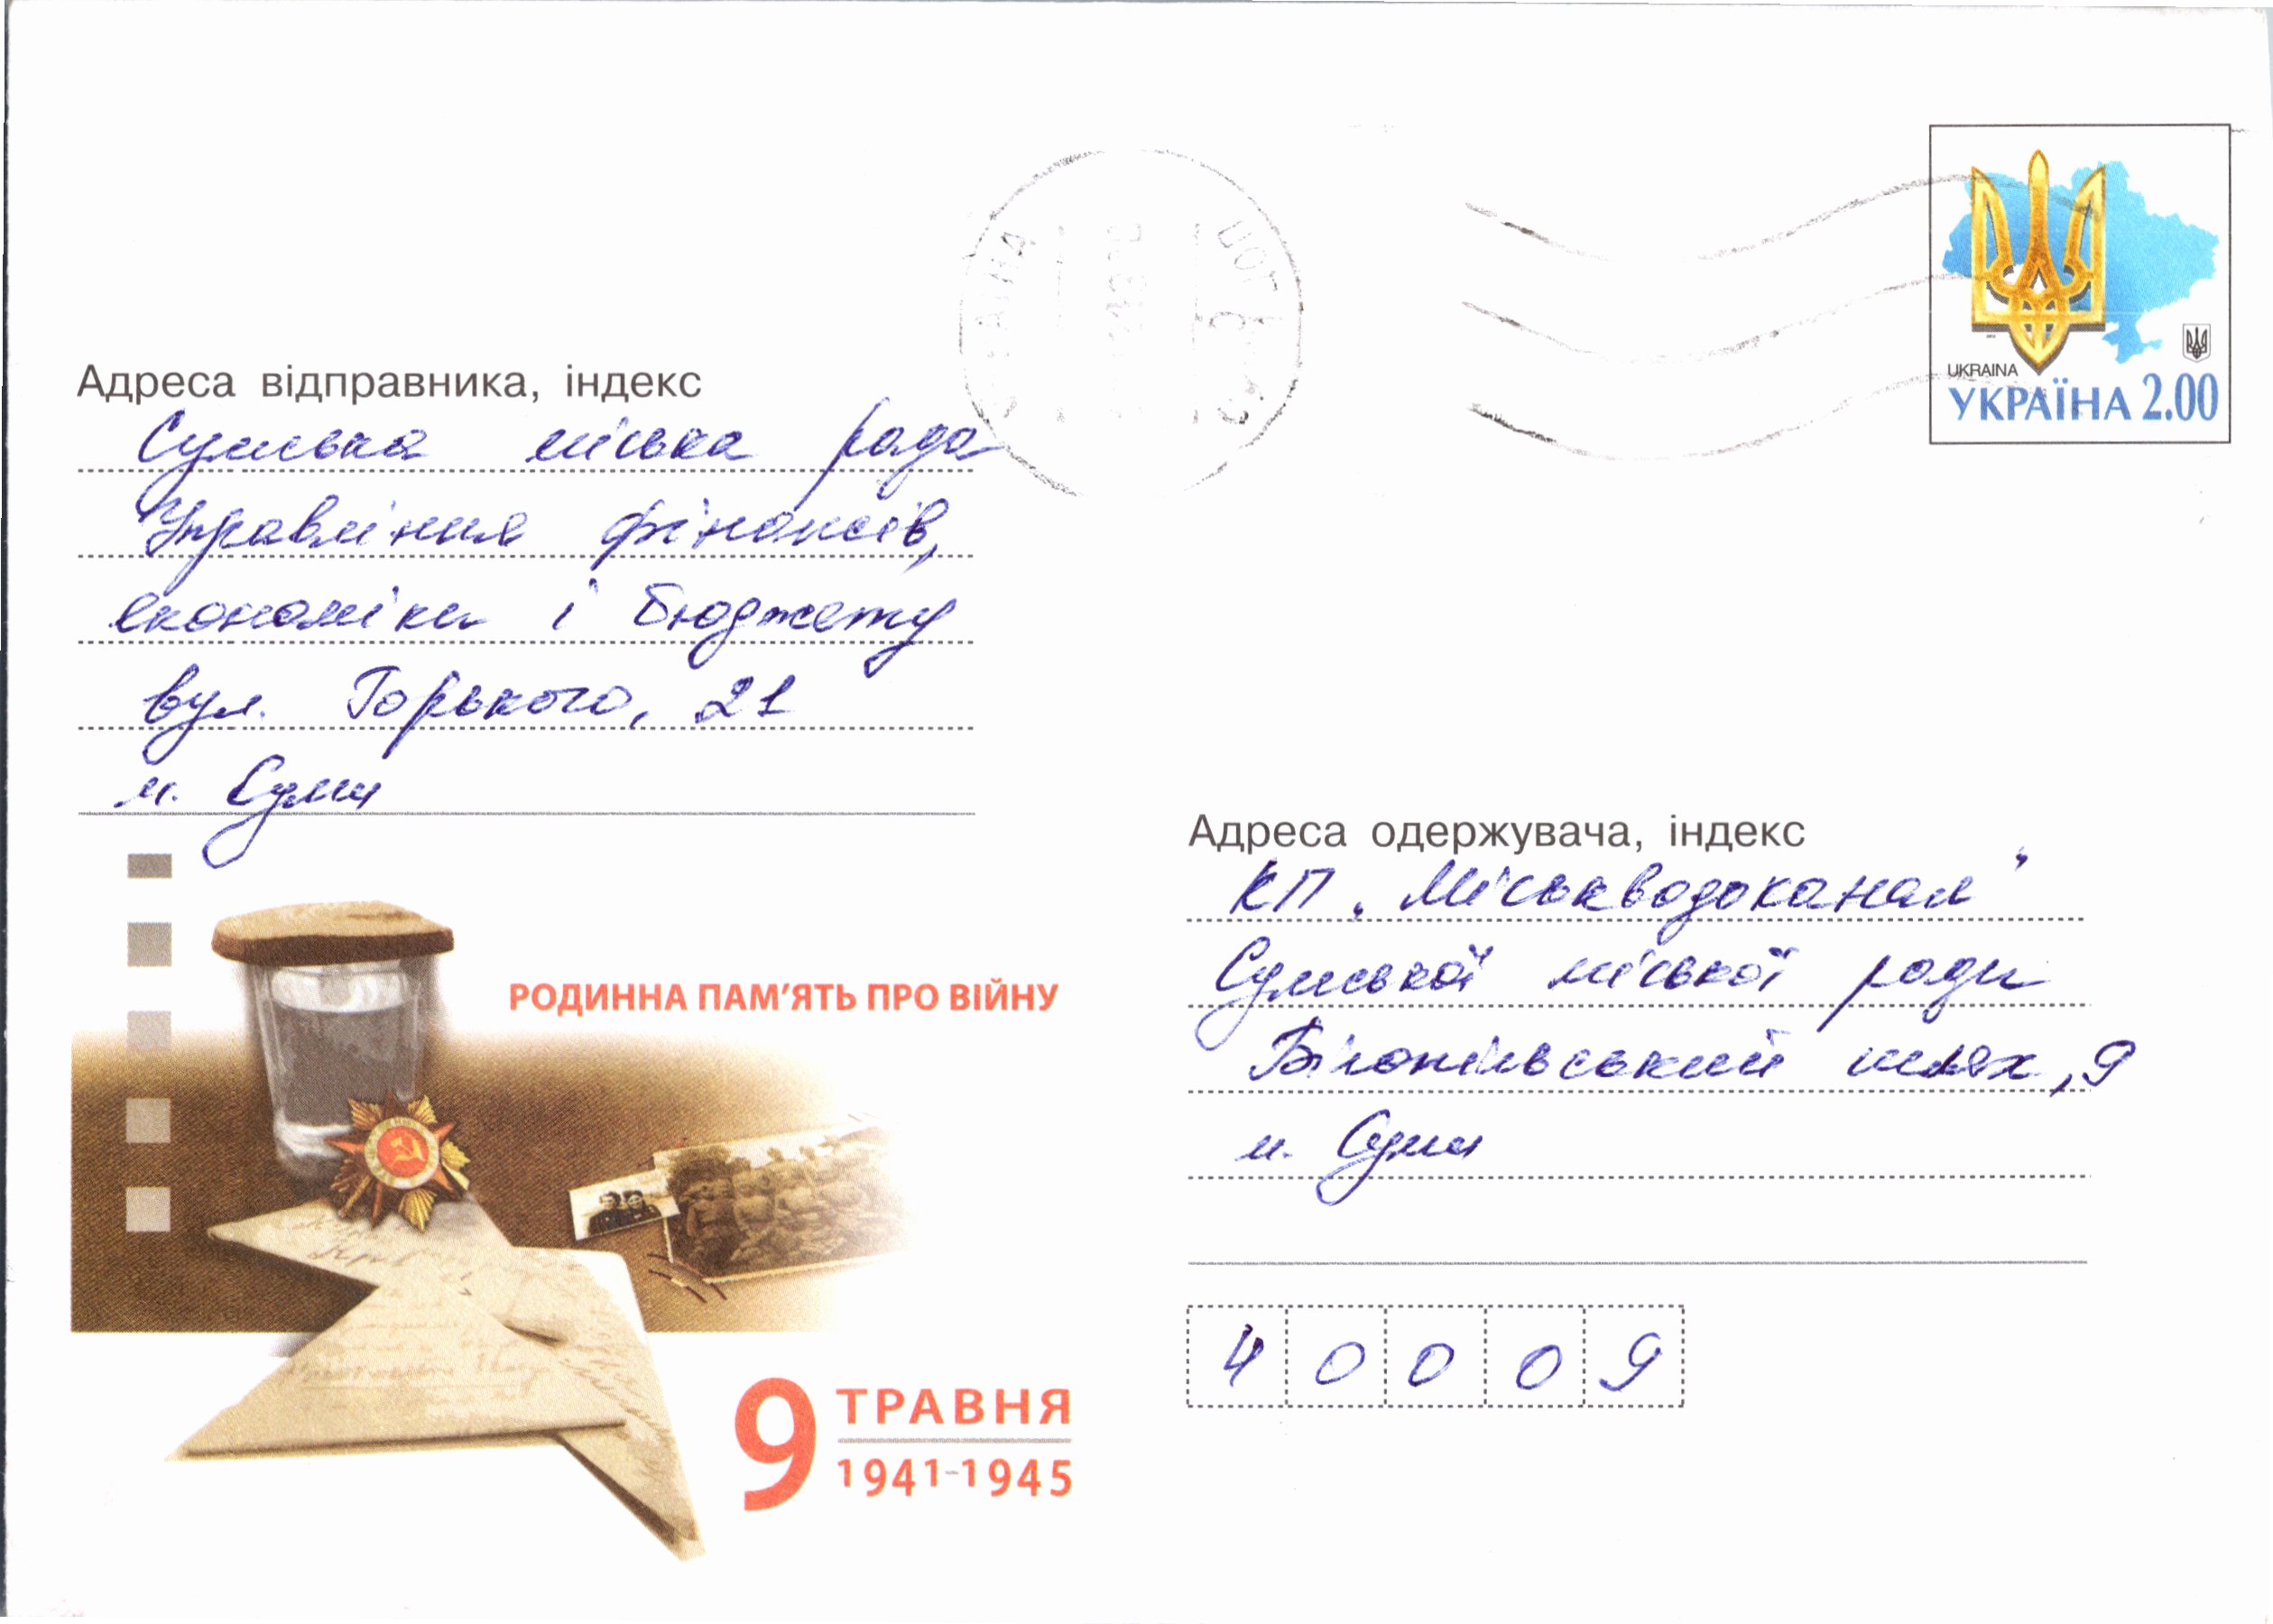 Адреса відправника, індекс
Сумська міська рада
Управління фінансів,
економіки і бюджету
вул. Горького, 21
м. Суми
UKRAINA
УКРАЇНА 2.00
Адреса одержувача, індекс
КП „Міськводоканал"
Сумської міської ради
Білопільський шлях, 9
м. Суми
40009
РОДИННА ПАМ'ЯТЬ ПРО ВІЙНУ
9 ТРАВНЯ
1941-1945